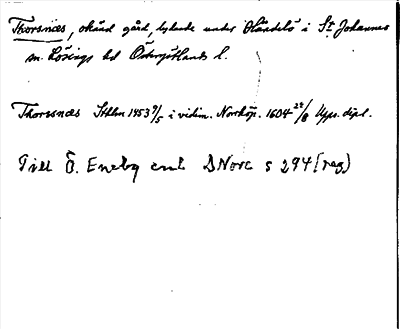 Thorsnæs, okänd gård, lydande under Händelö i S:t Johannes
sn. Lösings hd Östergötlands l.
Thorsnæs Sthlm 1453 9/5 i vidim. Norrköp. 1604 24/8 Upps. dipl.
Till Ö. Eneby enl DNorc s 294 (reg)